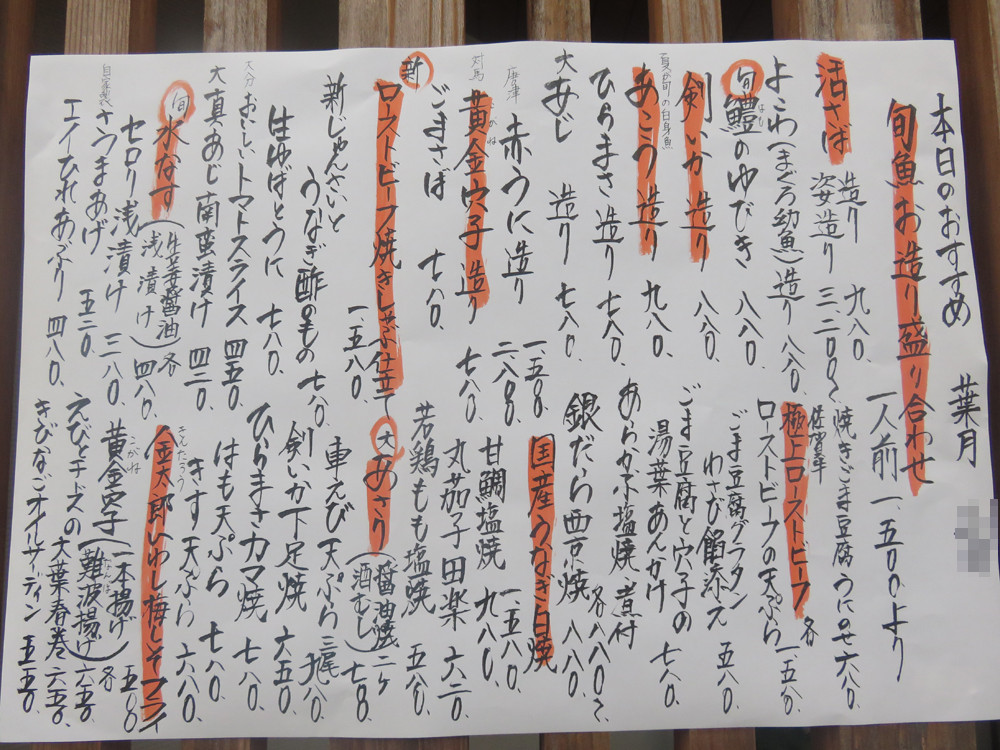 本日のおすすめ 葉月
旬魚お造り盛り合わせ
一人前 一、五〇〇より
活さば
造り 九八〇、
姿造り 三、二〇〇〜
よこわ(まぐろ幼魚)造り 八八〇、
旬 鱧のゆびき 八八〇、
はも
剣いか 造り 八八〇、
夏が旬の白身魚
あこう 造り 九八〇、
ひらまさ 造り 七八〇、
大あじ 造り 七八〇、
唐津
赤うに造り 一、五〇〇
二、八〇〇
対馬
黄金穴子造り 七八〇、
こがね
ごまさば 七八〇、
新 ローストビーフ焼きしゃぶ仕立て
一、五八〇、
新じゅんさいと
うなぎ酢のもの 七八〇、
はゆばとうに 七八〇、
大分
おいしいトマトスライス 四五〇、
大真あじ南蛮漬け 四二〇、
旬 水なす(生姜醤油 浅漬け)各 四八〇、
セロリ浅漬け 三八〇、
自家製
さつまあげ 五二〇、
エイひれあぶり 四八〇、
焼きごま豆腐 うにのせ 六八〇、
佐賀産
極上ローストビーフ
ローストビーフの天ぷら 各 一、五八〇、
ごま豆腐グラタン
わさび餡添え 五八〇、
ごま豆腐と穴子の
湯葉あんかけ 七八〇、
あらかぶ塩焼 煮付
各 八八〇〜、
銀だら西京焼 八八〇、
国産うなぎ白焼
一、五八〇、
甘鯛塩焼 九八〇、
丸茄子田楽 六二〇、
若鶏もも塩焼 五八〇、
大 あさり(醤油焼 酒むし)二ヶ 七八〇、
車えび天ぷら 三尾 九八〇、
剣いか下足焼 六五〇、
ひらまさカマ焼 七八〇、
はも天ぷら 七八〇、
きす天ぷら 六八〇、
きんたろう
金太郎いわし梅しそフライ
五八〇
こがね
黄金穴子(一本揚げ 難波揚げ)各 六五〇、
なんば
えびとチーズの大葉春巻 六五〇、
きびなごオイルサーディン 五五〇、